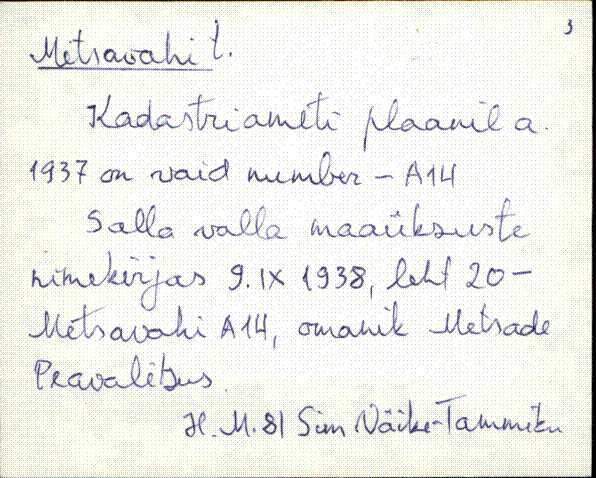 3
Metsavahi t.
Kadastriameti plaanil a.
1937 on vaid number – A14
Salla valla maaüksuste
nimekirjas 9. IX 1938, leht 20 –
Metsavahi A14, omanik Metsade
Peavalitsus.
H. M. 81 Sim Väike-Tammiku